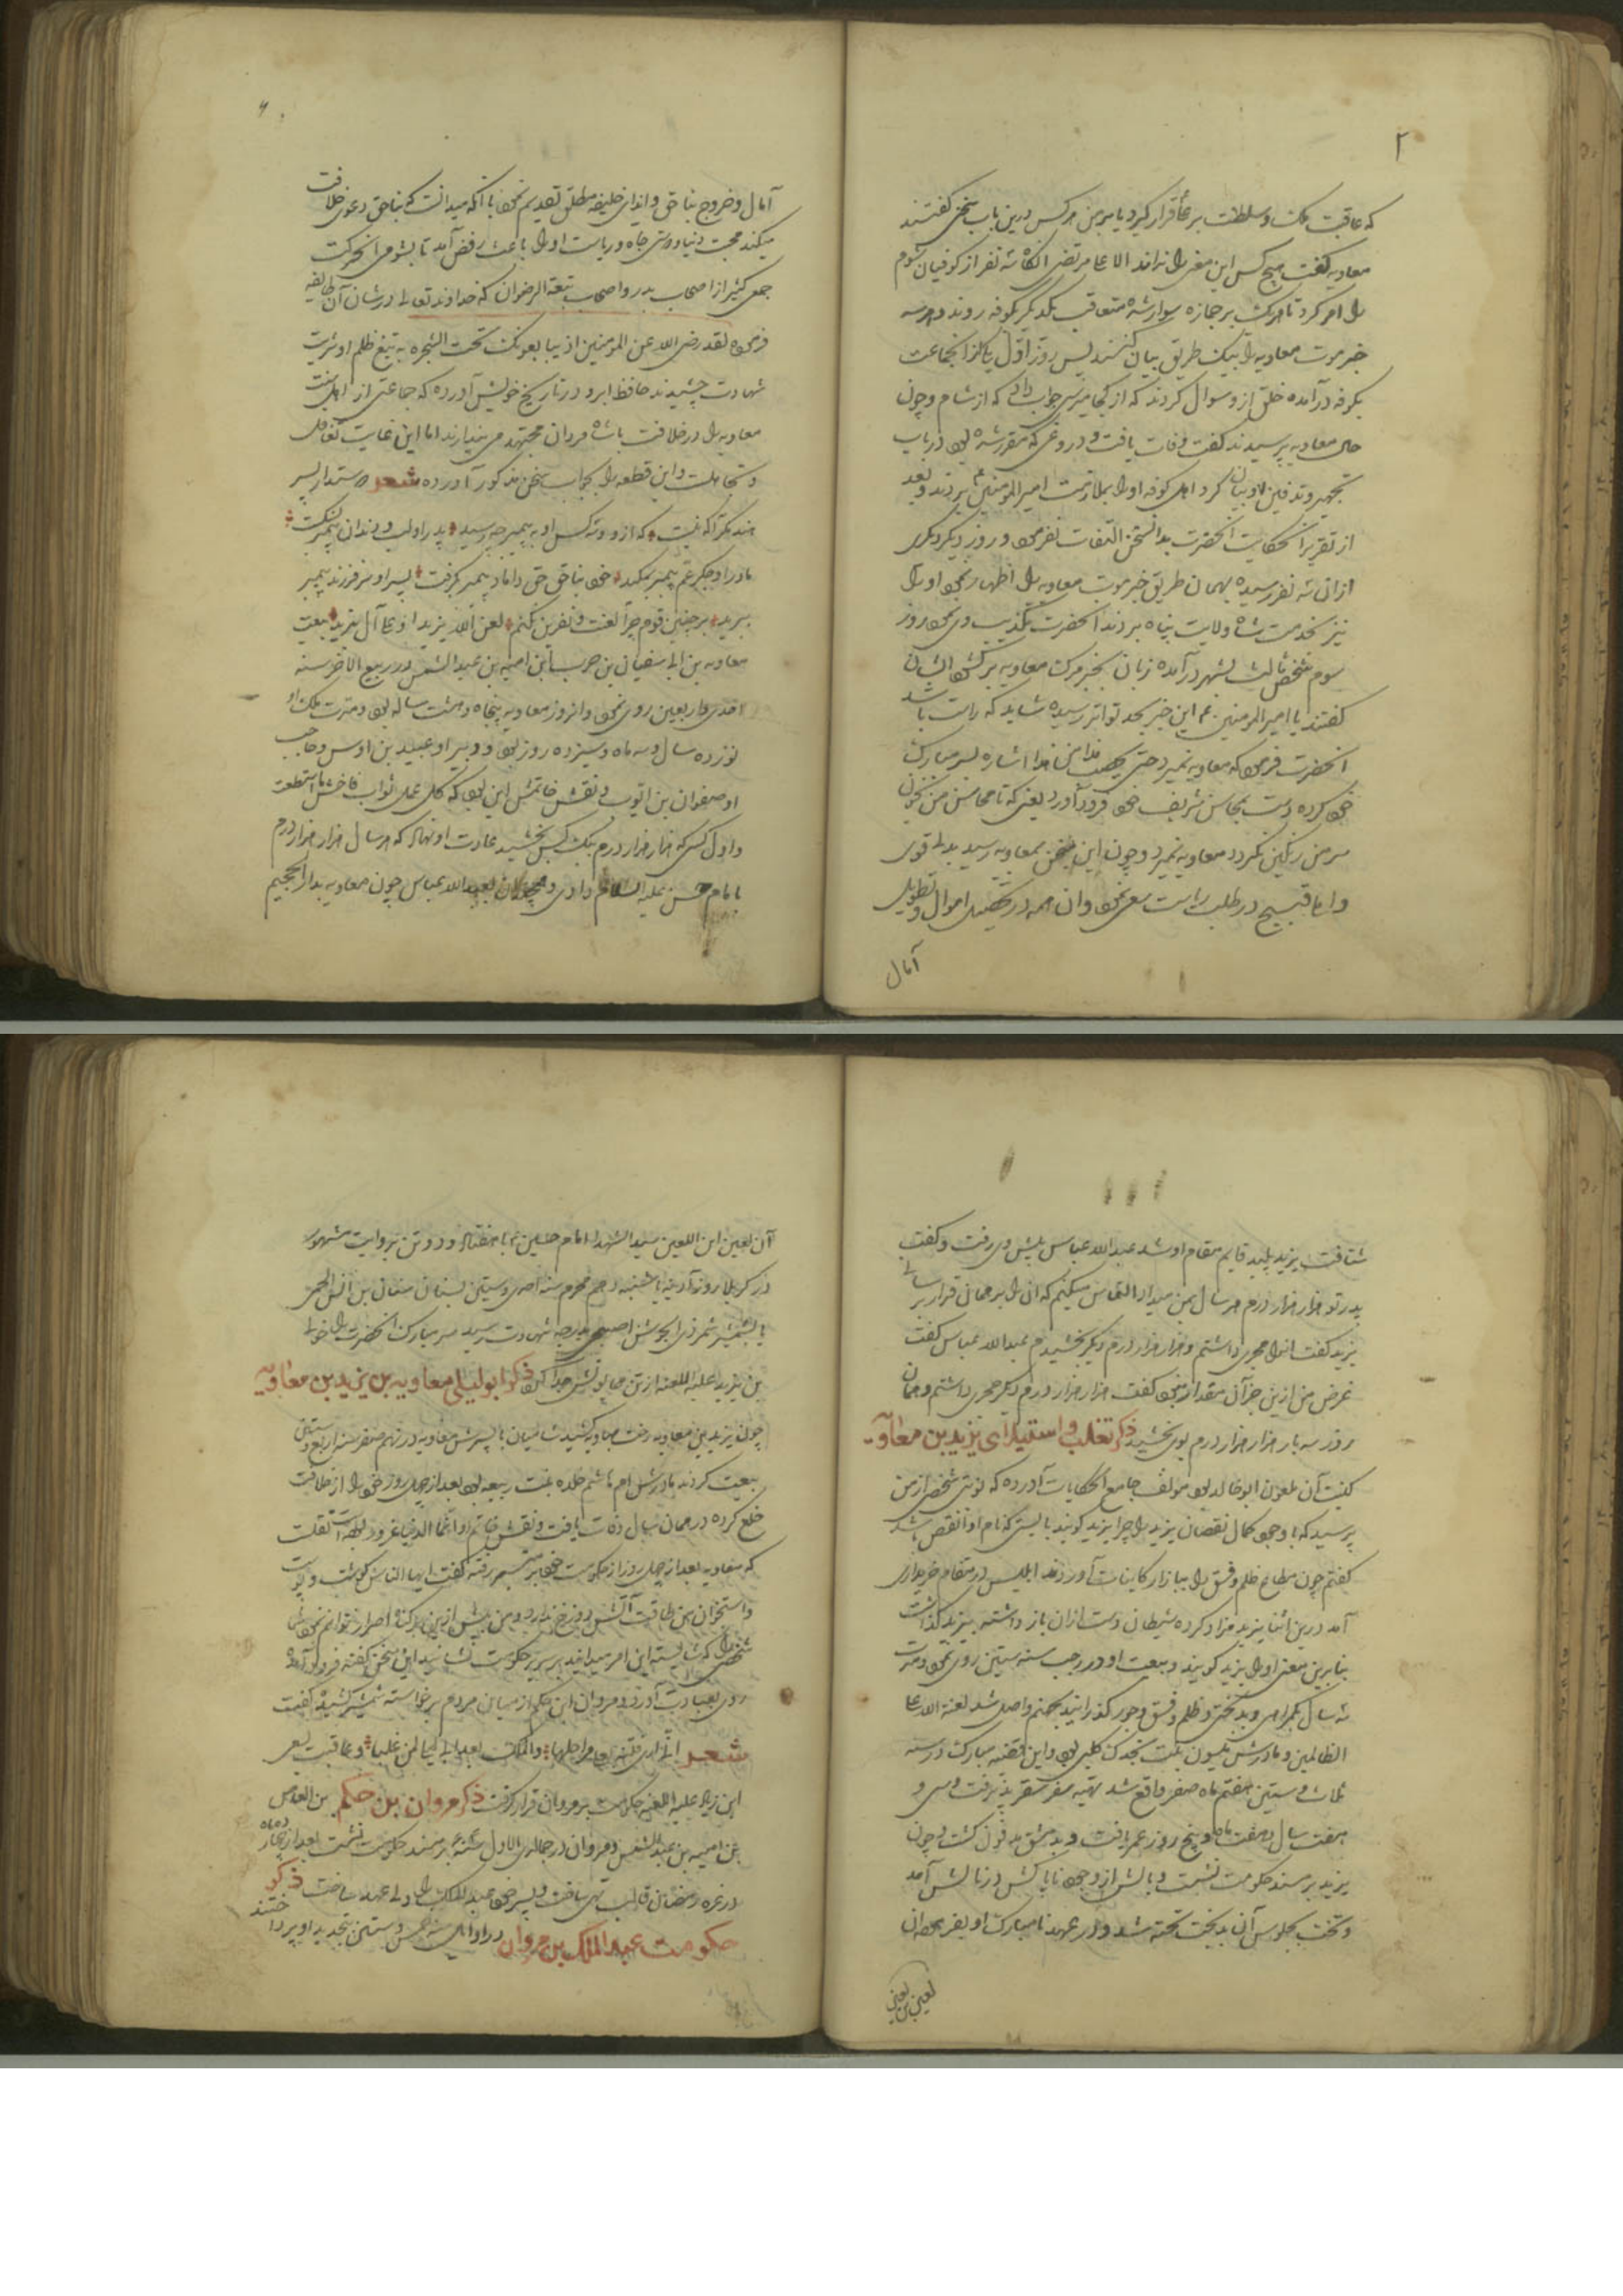 ۲
که عاقبت ملک و سلطنت بر ما قرار گیرد یا بر من هر کس درین باب سخن گفتند
معاویه گفت هیچ کس این معنی را نداند الا علی مرتضی آنگاه سه نفر از کوفیان شوم
را امر کرد تا هر یک بر جمازه سوار شده متعاقب یکدیگر بکوفه روند و هر سه
خبر موت معاویه را بیک طریق بیان کنند پس روز اول یکی از آنجماعت
بکوفه درآمده خلق از و سوال کردند که از کجا میرسی جواب داد که از شام و چون
حال معاویه پرسیدند گفت وفات یافت و دروغی که مقرر شده بود در باب
تجهیز و تدفین او بیان کرد اهل کوفه او را بملازمت امیر المومنین بردند و بعد
از تقریر آنحکایت آنحضرت بدانسخن التفات نفرمود و روز دیگر دیگری
از ان سه نفر رسیده بهمان طریق خبر موت معاویه را اظهار نمود او را
نیز بخدمت شاه ولایت پناه بردند آنحضرت تکذیب وی نمود روز
سوم شخص ثالث بشهر درآمده زبان بخبر مرگ معاویه برگشود ایشان
گفتند یا امیر المومنین این خبر بحد تواتر رسیده شاید که راست باشد
آنحضرت فرمود که معاویه نمیرد حتی یخضب هذا من هذا اشاره بسر مبارک
خود کرده دست بمحاسن شریف خود فرود آورد یعنی که تا محاسن من بخون
سر من رنگین نگردد معاویه نمیرد و چون این سخن بمعاویه رسید بدل قوی
و امل قبیح در طلب ریاست سعی نمود وان همه در تحصیل اموال و تطویل
آمال
آمال و خروج بناحق و ایذای خلیفه مطلق تقدیم نمود با آنکه میدانست که بناحق دعوی خلافت
میکند محبت دنیا و دوستی جاه و ریاست او را باعث رفض آمد تا بشومی آنحرکت
جمعی کثیر از اصحاب بدر و اصحاب بیعة الرضوان که خداوند تعالی در شان آن طایفه
فرموده لقد رضی الله عن المومنین اذ یبایعونک تحت الشجره به تیغ ظلم او شربت
شهادت چشیدند حافظ ابرو در تاریخ خویش آورده که جماعتی از اهل سنت
معاویه را در خلافت با شاه مردان مجتهد می پندارند اما این غایت تغافل
و تجاهلست و این قطعه را بجواب سخن مذکور آورده شعر داستان پسر
هند مگر آگه نیست که ازو و سه کس او به پیمبر چه رسید پدر او لب و دندان پیمبر بشکست
مادر او جگر عم پیمبر بمکید خود بناحق حق داماد پیمبر بگرفت پسر او سر فرزند پیمبر
ببرید بر چنین قوم چرا لعنت و نفرین نکنم لعن الله یزیدا و علی آل یزید بیعت
معاویه بن ابی سفیان بن حرب بن امیه بن عبد الشمس در ربیع الاخر سنه
احدی و اربعین روی نمود و انروز معاویه پنجاه و هشت ساله بود و مدت ملک او
نوزده سال و سه ماه و سیزده روز بود و دبیر او عبید بن اوس و حاجب
او صفوان بن ایوب و نقش خاتمش این بود که لکل عمل ثواب
و اول کسی که هزار هزار درم بیک کس بخشید عادت او نهاد که هر سال هزار هزار درم
بامام حسن علیه السلام دادی و همچنان بعبد الله عباس چون معاویه بدار الجحیم
شتافت یزید پلید قایم مقام او شد عبد الله عباس پیش وی رفت و گفت
پدر تو هزار هزار درم هر سال بمن میداد التماس میکنم که آن را بر همان قرار برسانی
یزید گفت انرا مجری داشتم و هزار هزار درم دیگر بخشیدم عبد الله عباس گفت
غرض من ازین جز آن مقدار نبود گفت هزار هزار درم دیگر مجری داشتم و همان
روز سه بار هزار هزار درم بوی بخشید ذکر تغلب و استیلای یزید بن معاویه
کنیت آن ملعون ابو خالد بود مولف جامع الحکایات آورده که نوبتی شخصی از من
پرسید که با وجود کمال نقصان یزید را چرا یزید گویند بایستی که نام او انقص باشد
گفتم چون مطاع ظلم و فسق را ببازار کاینات آوردند ابلیس در مقام خریداری
آمد درین اثنا یزید مزاد کرده شیطان دست ازان باز داشته بیزید گذاشت
بنابرین معنی او را یزید گویند و بیعت او در رجب سنه ستین روی نمود و مدت
سه سال بگمراهی و بدبختی و ظلم و فسق و جور گذرانید بجهنم واصل شد لعنة الله علی
الظالمین و مادرش میسون بنت بجدل کلبی بود و این قضیه مبارک در سنه
ثلاث و ستین هفتم ماه صفر واقع شد تهیه سفر سقر پذیرفت و سی و
هفت سال و هفت ماه و پنج روز عمر یافت و بدمشق مدفون گشت و چون
یزید بر مسند حکومت نشست و بالش از وجود ناپاکش در نالش آمد
و تخت بجلوس آن بدبخت تخته شد و در عهد نامبارک او بفرموده آن
لعین بن لعین
آن لعین ابن اللعین سید الشهدا امام حسین با هفتاد و دو تن بروایت مشهور
در کربلا روز آدینه یا شنبه دهم محرم سنه احدی و ستین بسنان سنان بن انس
یا بشمشیر شمر ذی الجوشن بدرجه شهادت رسید سر مبارک آنحضرت را خولی
بن یزید علیه اللعنه از تن همایونش جدا کرد ذکر ابو لیلی معاویه بن یزید بن معاویه
چون یزید بن معاویه رخت بهاویه کشید شامیان با پسرش معاویه در نهم صفر سنه اربع و ستین
بیعت کردند مادرش ام هاشم خلده بنت ربیعه بود بعد از چهل روز خود را از خلافت
خلع کرده در همان سال وفات یافت و نقش خاتم او انما الدنیا غرور بود نقلست
که معاویه بعد از چهل روز از حکومت خود بر منبر رفته گفت ایها الناس گوشت و پوست
و استخوان من طاقت آتش دوزخ ندارد و من بیش ازین بر گناه اصرار نتوانم نمود
شخصی را که شایسته این امر میدانید بر سریر حکومت نشانید این سخن گفته فرود آمد
روی بعبادت آورد و مروان ابن حکم از میان مردم برخواسته شمشیر کشیده گفت
شعر انی اری فتنة تغلی مراجلها والملک بعد ابی لیلی لمن غلبا و عاقبت بسعی
ابن زیاد علیه اللعنه حکومت بر مروان قرار گرفت ذکر مروان بن حکم بن العاص
بن امیه بن عبد الشمس و مروان در جمادی الاول بر مسند حکومت نشست بعد از چهار
در غره رمضان قالب تهی ساخت و پسر خود عبد الملک را ولی عهد ساخت ذکر
حکومت عبد الملک بن مروان در اوایل سنه خمس و ستین بتجدید او پرداختند